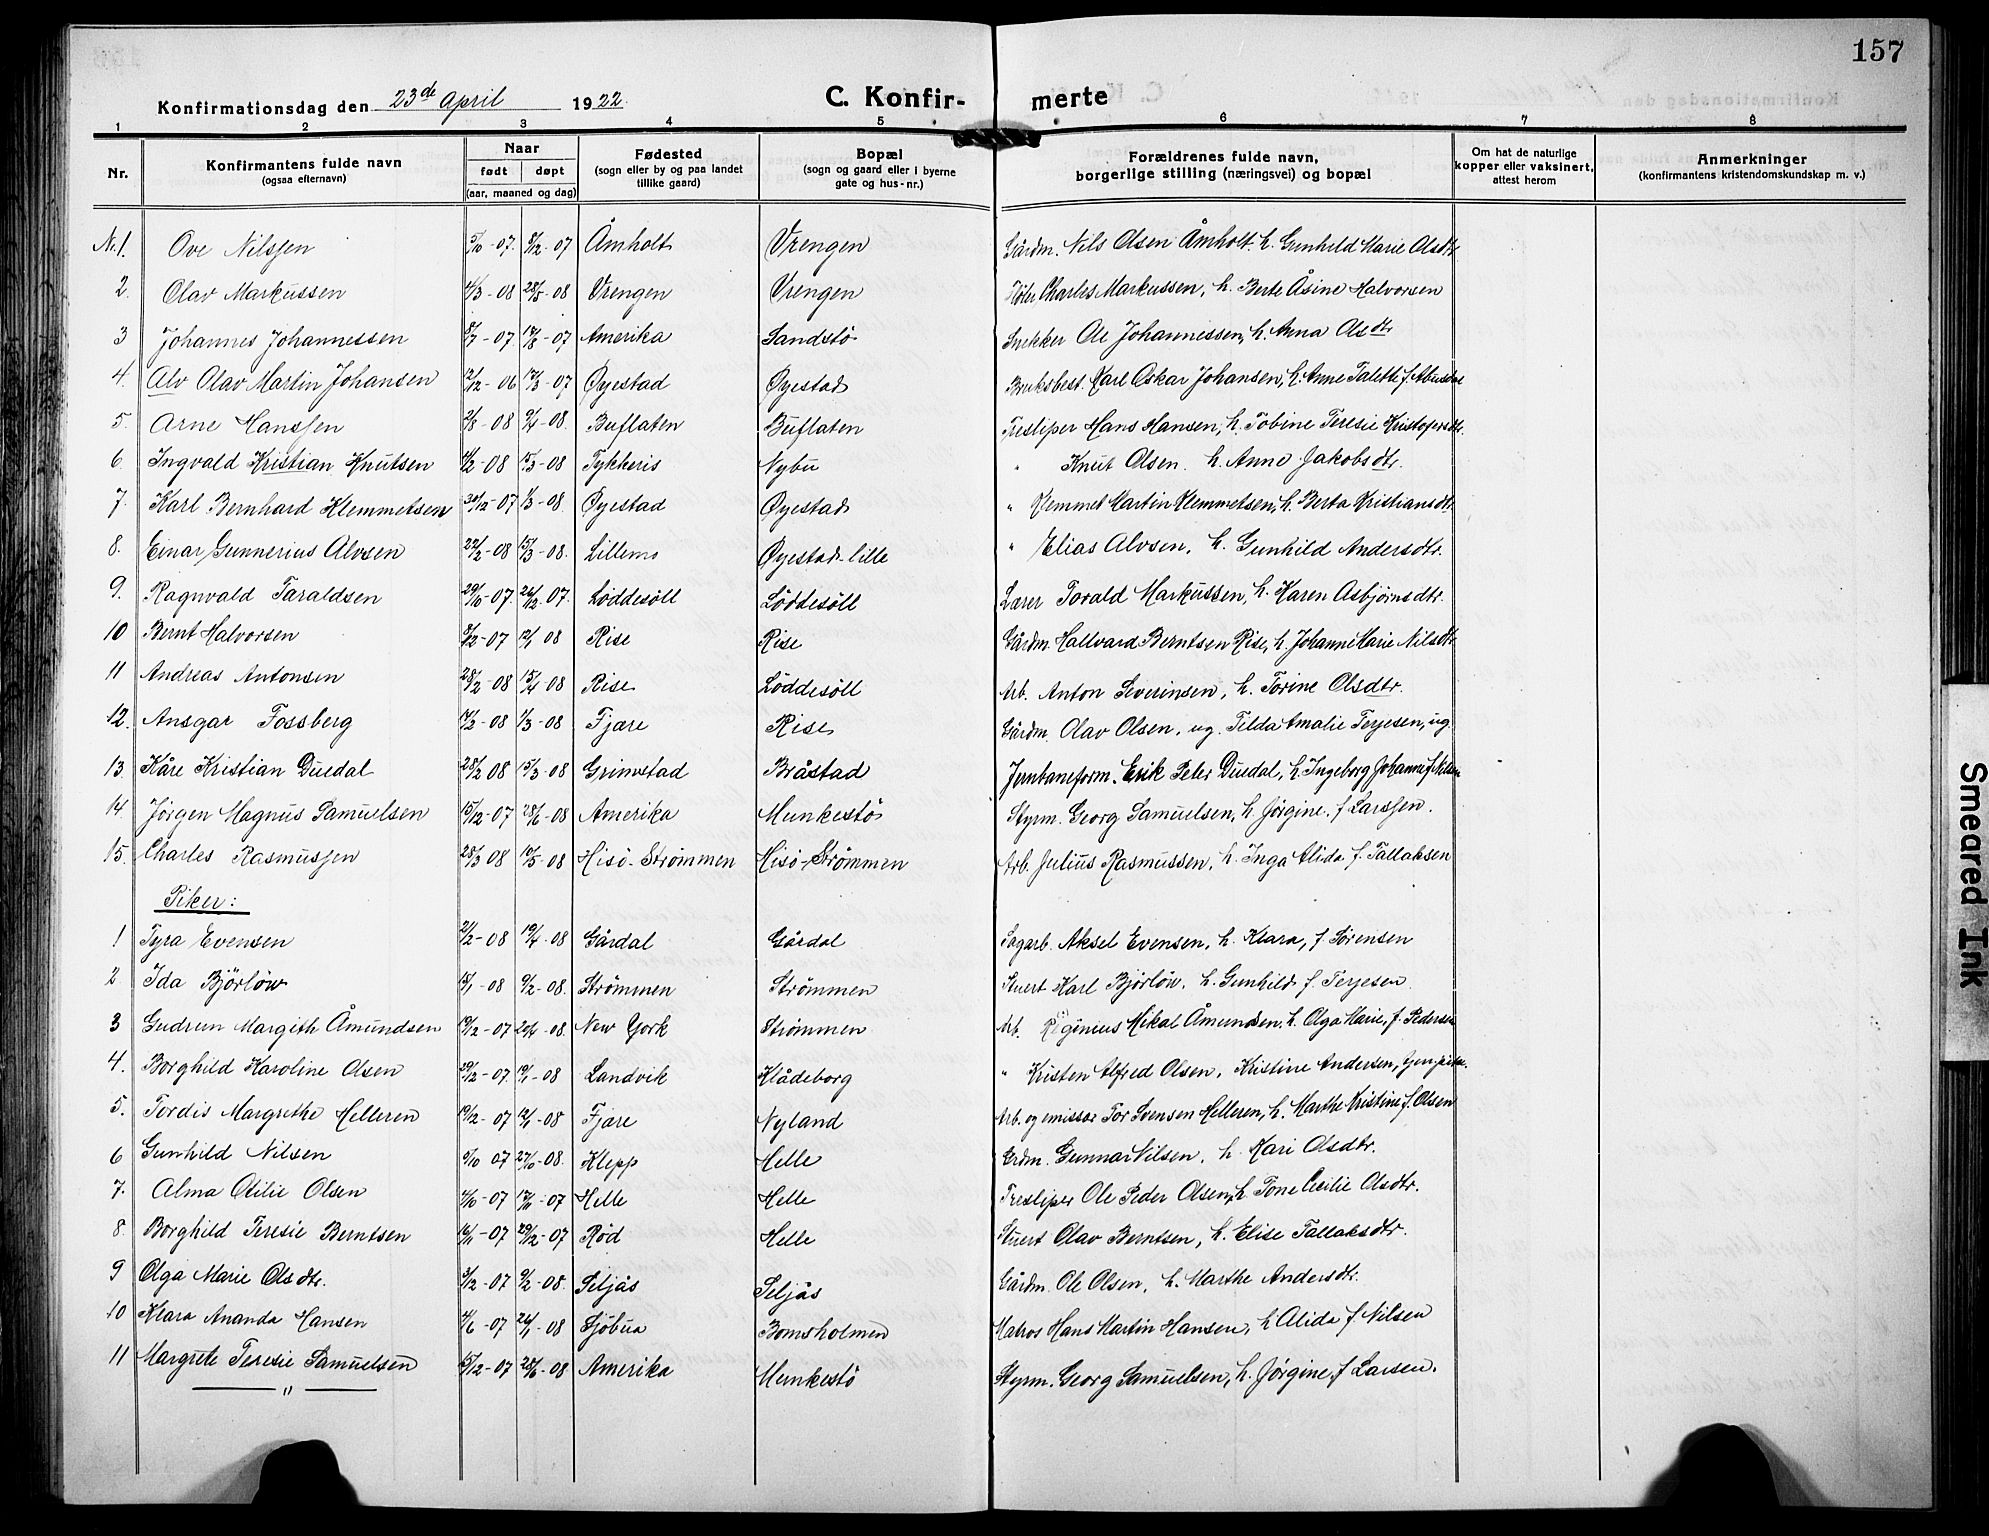 157
Konfirmationsdag den 23de April 1922. C. Konfirmerte
1 2 3 4 5 6 7 8
Nr. Konfirmantens fulde navn (ogsaa efternavn) Naar født døpt (aar, maaned og dag) Fødested (sogn eller by og paa landet tillike gaard) Bopæl (sogn og gaard eller i byerne gate og hus-nr.) Forældrenes fulde navn, borgerlige stilling (næringsvei) og bopæl Om hat de naturlige kopper eller vaksinert, attest herom Anmerkninger (konfirmantens kristendomskundskap m. v.)
Nr. 1. Ove Nilssen 5/10-07. 8/12-07 Åmholt Vrengen Gårdm. Nils Olsen Åmholt. h. Gunhild Marie Olsdtr.
2. Olav Markussen 4/3-08 28/5-08 Vrengen Vrengen Charles Markussen, h. Berte Åsine Halvorsen
3 Johannes Johannessen 8/7-07 18/8-07 Amerika Sandstö Snekker Ole Johannessen, h. Anna Olsdtr
4. Alv Olav Martin Johansen 12/12-06 17/3-07 Øyestad Øyestad Bruksbest. Karl Oskar Johansen, h. Anne Talette f.
5. Arne Hanssen 2/3-08 9/4-08. Buflaten Buflaten Tresliper Hans Hansen, h. Tobine Teresie Kristofersdtr.
6. Ingvald Kristian Knutsen 4/2-08 15/3-08 Tykheris Nybu " Knut Olsen. h. Anne Jakobsdtr.
7. Karl Bernhard Klemmetsen 30/12-07 1/3-08. Øyestad Øyestad " Klemmet Martin Klemmetsen, h. Berta Kristiansdtr.
8. Einar Gunnerius Alvsen 22/2-08 15/3-08. Lillemo Øyestad-lille " Elias Alvsen, h. Gunhild Andersdtr.
9. Ragnvald Taraldsen 29/10-07. 26/12-07. Löddesöll Löddesöll Lærer Torald Markussen, h. Karen Asbjörnsdtr.
10 Bernt Halvorsen 8/12-07 12/1 08 Rise Rise Gårdm. Hallvard Berntsen Rise, h. Johanne Marie Nilsdtr
11 Andreas Antonsen 28/2-08 15/4 08 Rise Löddesöll Arb. Anton Severinsen, h. Torine Olsdtr.
12. Ansgar Fossberg 14/2-08 1/3-08 Fjære Rise Gårdm. Olav Olsen, ug. Tilda Amalie Terjesen, ug.
13. Kåre Kristian Duedal 23/2 08 15/3-08 Grimstad Bråstad Jernbaneform. Erik Peter Duedal, h. Ingeborg Johanne f. Nilsen
14. Jörgen Magnus Samuelsen 15/12-07 28/6-08 Amerika Munkestö Styrm. Georg Samuelsen, h. Jörgine. f Larssen.
15. Charles Rasmussen 28/3 08 10/5-08 Hisö-Strømmen Hisö-Strømmen Arb. Julius Rasmussen, h. Inga Alida f. Tallaksen
Piker:
1 Tyra Evensen 2/2-08 19/4 08 Gårdal Gårdal Sagarb. Aksel Evensen, h. Klara, f. Sörensen
2 Ida Björlöw 18/1-08 9/2-08. Strömmen Strömmen Stuert Karl Björlöw. h. Gunhild f. Terjesen.
3 Gudrun Margith Åmundsen 19/12-07 20/4-08. New York Strömmen Arb. Reginius Mikal Åmundsen, h. Olga Marie, f. Pedersen
4. Borghild Karoline Olsen 29/12-07. 19/1-08 Landvik Klådeborg " Kristen Alfred Olsen, Kristine Andersen,
5. Tordis Margrethe Helleren 19/12-07 12/1-08 Fjære Nyland Arb. og emissær Tor Svensen Helleren, h. Marthe Kristine f. Olsen
6 Gunhild Nilsen 5/10 07 27/10-08. Klepp Helle Grdm. Gunnar Nilsen, h. Kari Olsdtr.
7. Alma Otilie Olsen 4/10-07 17/11-07 Helle Helle Tresliper Ole Peder Olsen, h. Tone Cecilie Olsdtr.
8. Borghild Teresie Berntsen 16/11-07 29/12-07 Rød Helle Stuert Olav Berntsen, h. Elise Tallaksdtr.
9 Olga Marie Olsdtr. 3/12-07 9/2-08. Seljås Seljås Gårdm. Ole Olsen, h. Marthe Andersdtr.
10 Klara Ananda Hansen 4/6-07 26/1-08 Sjöbua Bomsholmen Matros Hans Martin Hansen, h Alida f Nilsen
11 Margrete Teresie Samuelsen 15/12-07 28/6-08 Amerika Munkestö Styrm. Georg Samuelsen, h. Jörgine, f Larsen.
"
Smeared Ink